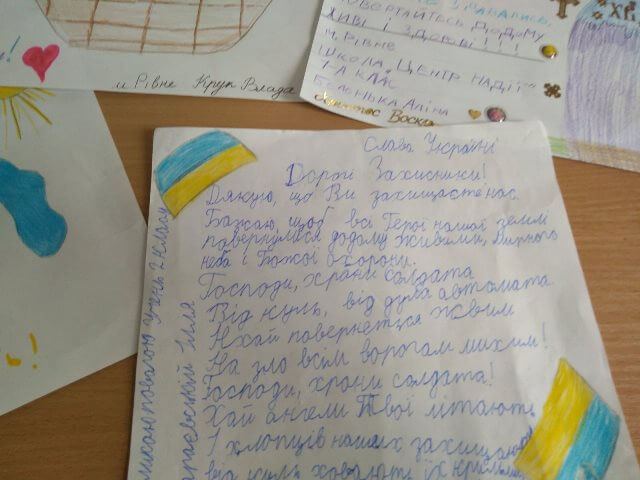 м Рівне Круп Влада
ПОВЕРТАЙТЕСЬ ДОДОМУ
ЖИВІ І ЗДОРОВІ!!!
М. РІВНЕ
ШКОЛА "ЦЕНТР НАДІЇ"
1-А КЛАС
БІЛОНЬКА АЛІНА
Христос Воскр
ХВ
Слава Україні
Дорогі Захисники!
Дякую, що Ви захищаєте нас.
Бажаю, щоб всі Герої нашої землі
повернулися додому живими, Мирного
неба і Божої охорони.
Господи, храни солдата
Від куль, від дула автомата
Нхай повернеться живим
На зло всім ворогам лихим!
Господи, храни солдата!
Хай ангели Твої літають
І хлопців наших захищають
від куль ховають їх крильми
повагою учень 2 класу
Ілля